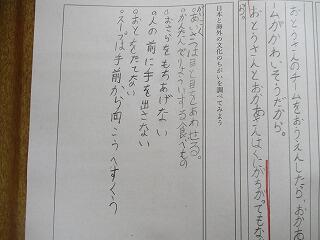 おとうさんのチームをおうえんしたら、おかあ
ームがかわいそうだから。
おとうさんとおかあさんはくにがちがってもな
日本と海外の文化のちがいを調べてみよう
・あいさつは目と目をあわせる。
・する食べもの
・おさらをもちあげない
・人の前に手を出さない
・おとをたてない
・スープは手前から向こうへすくう